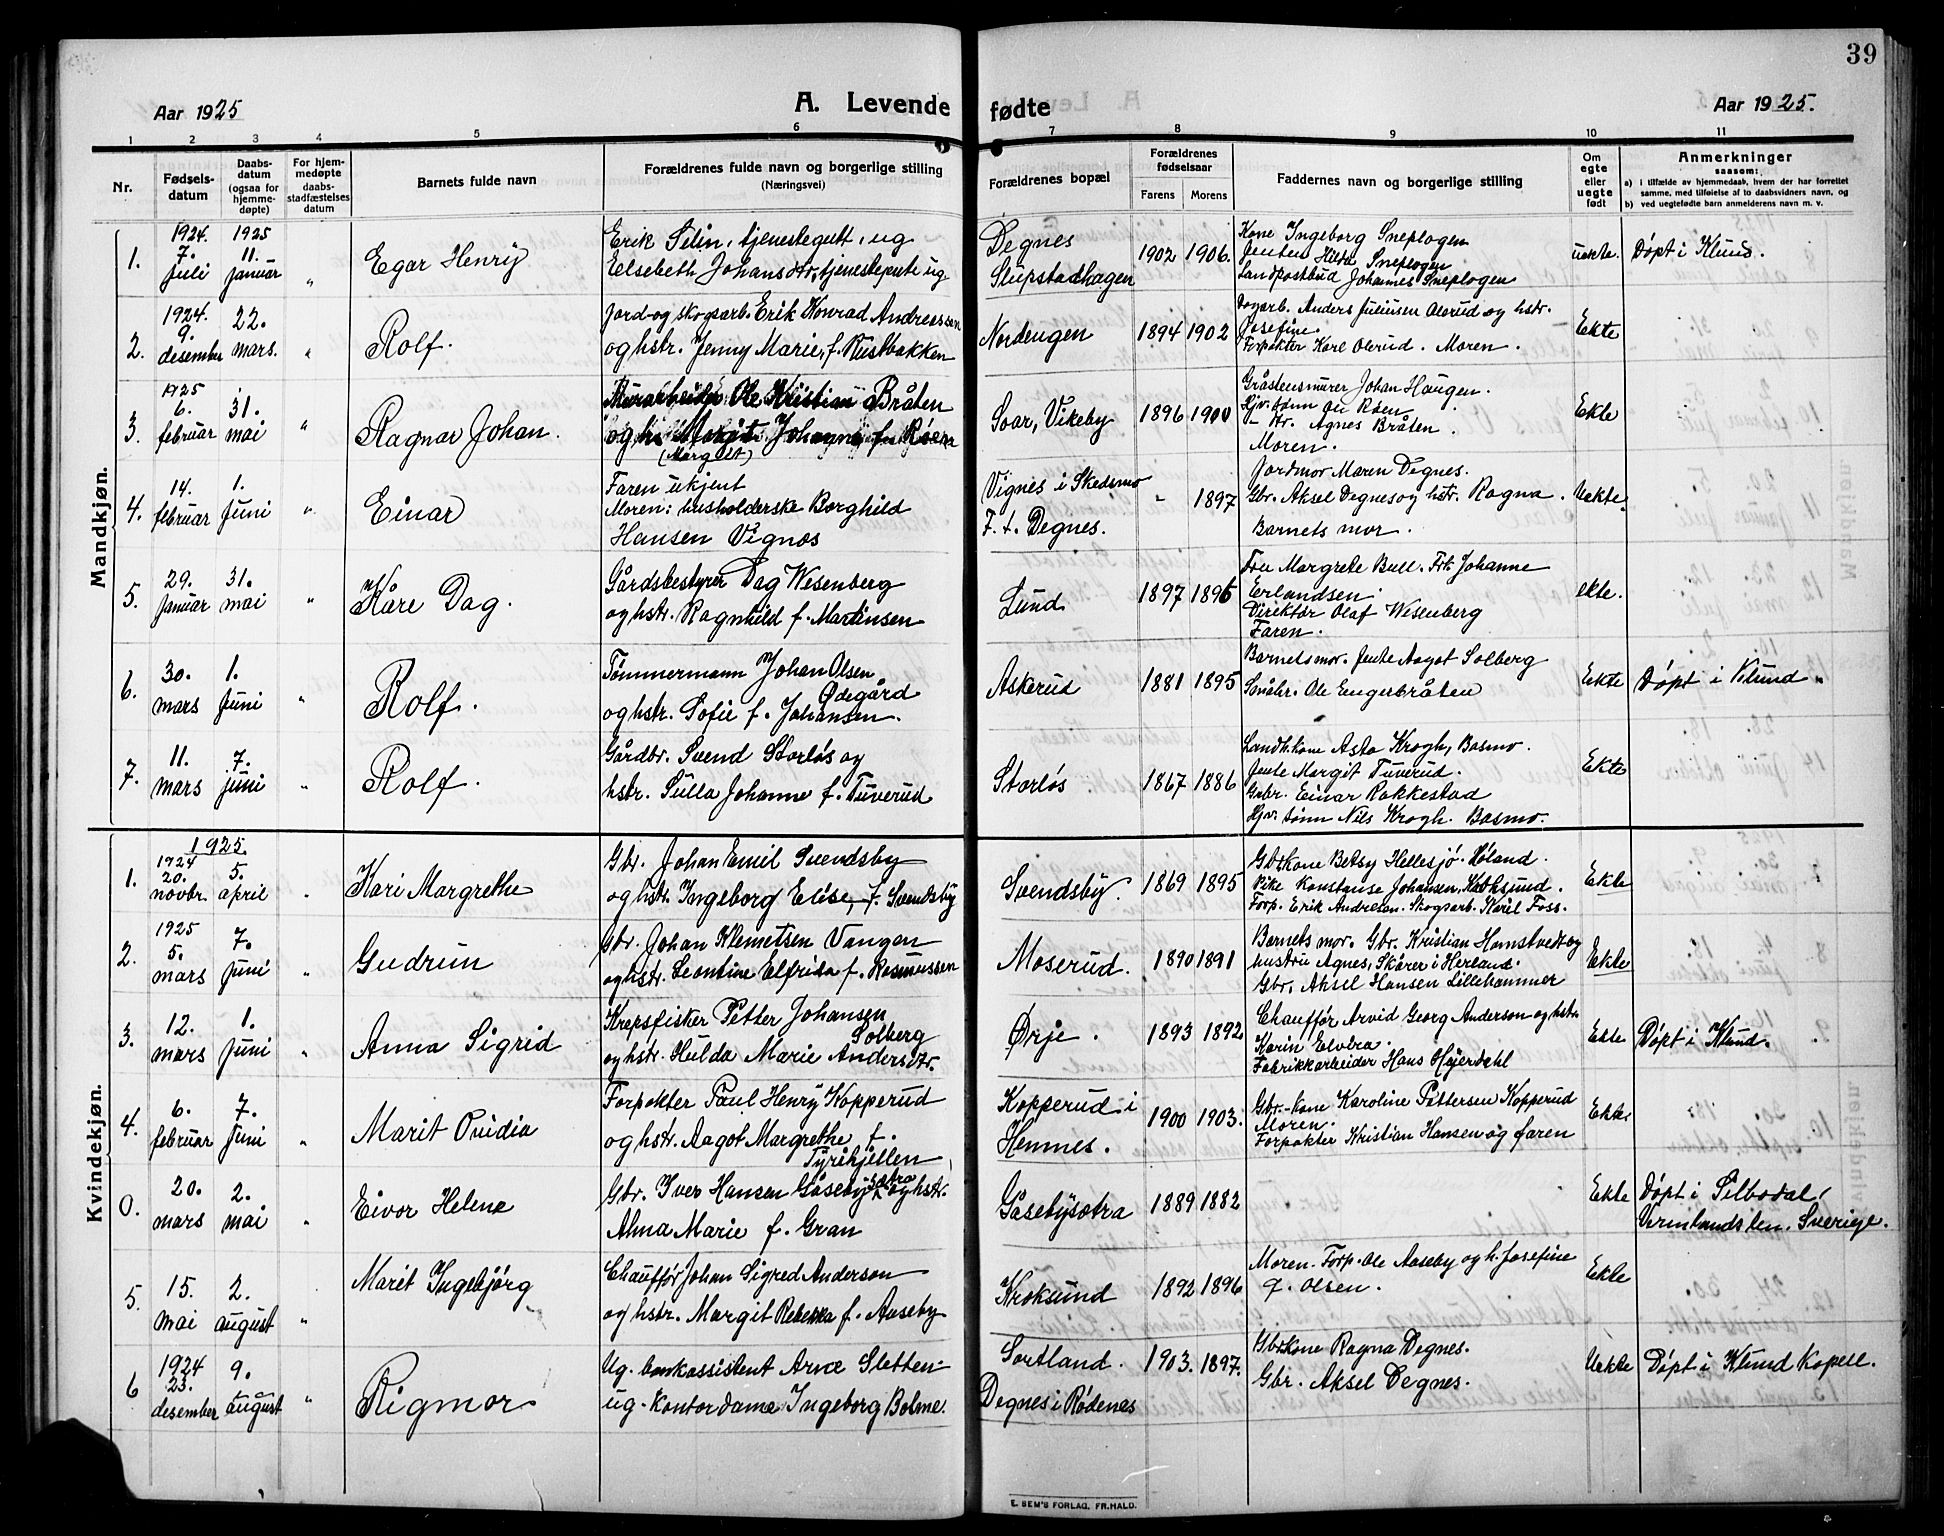 39
Aar 1925
A. Levende fødte
Aar 1925.
1 2 3 4 5 6 7 8 9 10 11
Nr.
Fødsels-
datum
Daabs-
datum
(ogsaa for
hjemme-
døpte)
For hjem-
medøpte
daabs-
stadfæstelses
datum
Barnets fulde navn
Forældrenes fulde navn og borgerlige stilling
(Næringsvei)
Forældrenes bopæl
Forældrenes
fødselsaar
Farens Morens
Faddernes navn og borgerlige stilling
Om
egte
eller
uegte
født
Anmerkninger
saasom:
a) i tilfælde av hjemmedaab, hvem der har forrettet
samme, med tilføielse af to daabsvidners navn, og
b) ved uegtefødte barn anmelderens navn m. v.
Mandkjøn.
1.
1924.
7.
Juli
1925
11.
Januar
"
Egar Henry
Erik Selin, tjenestegutt, ug
Elsebeth Johansdtr, tjenestepike ug
Degnes
Slupstadhagen
1902 1906.
Kone Ingeborg Sneplogen
Jenten Hilda Sneplogen
Landpostbud Johannes Sneplogen
uekte.
Døpt i Klund.
2.
1924.
9.
desember
22.
mars.
"
Rolf.
Jord- og skogsarb. Erik Konrad Andreassen
og hstr. Jenny Marie, f. Rustbakken
Nordengen
1894 1902
Dagarb. Anders Juliusen Olerud og hstr.
Josefine.
Forpakter Karl Olerud. Moren.
Ekte
3.
1925
6.
februar
31.
mai
"
Ragnar Johan.
Murarbeider Ole Kristian Bråten
og h. Margit Johanne f. Røen
(Margit)
Soar, Vikeby
1896 1900
Gråstensmurer Johan Haugen.
Hjv. sønn Ole Røen.
D- tr. Agnes Bråten.
Moren.
Ekte
4.
14.
februar
1.
Juni
"
Einar
Faren ukjent
Moren: husholderske Borghild
Hansen Vignes
Vignes i Skedsmo
F. t. Degnes.
" 1897
Jordmor Maren Degnes.
Gbr. Aksel Degnes og hstr. Ragna.
Barnets mor.
Uekte.
5.
29.
Januar
31.
mai
"
Kåre Dag.
Gårdsbestyrer Dag Wesenberg
og hstr. Ragnhild f. Martinsen
Lund
1897 1896
Fru Margrete Bull. Frk Johanne
Erlandsen.
Direktør Olaf Wesenberg
Faren.
ekte.
6.
30.
mars
1.
Juni
"
Rolf.
Tømmermann Johan Olsen
Ødegård
og hstr. Sofie f. Johansen.
Askerud
1881 1895
Barnets mor. Jente Aagot Solberg
Småbr. Ole Engerbråten
Ekte
Døpt i Klund.
7.
11.
mars
7.
juni
"
Rolf.
Gårdbr. Svend Storløs og
hstr. Sulla Johanne f. Tuverud
Storløs
1867 1886
Landh.kone Asta Krogh, Basmo.
Jente Margit Tuverud.
Gabr. Einar Rakkestad
Hjv. sønn Nils Krogh. Basmo.
Ekte
Kvindekjøn.
1925.
1.
1924
20.
novbr.
5.
april
"
Kari Margrethe
Gbr. Johan Emil Svendsby
og hstr. Ingeborg Elise, f. Svendsby
Svendsby.
1869 1895
Gbrkone Betsy Hellesjø. Høland.
Pike Konstanse Johansen, Kroksund.
Forp. Erik Andresen. Skogsarb. Karil Foss.
Ekte
2.
1925
5.
mars
7.
Juni
"
Gudrun
Gbr. Johan Klemetsen Vangen
og hstr. Leontine Elfrida f. Rasmussen
Moserud.
1890 1891
Barnets mor. Gbr. Kristian Hamstvedt og
hustru Agnes, Skårer i Herland.
Gbr. Aksel Hansen Lillehammer
Ekte
3.
12.
mars
1.
Juni
"
Anna Sigrid
Krepsfisker Petter Johansen
Solberg
og hstr. Hulda Marie Andersdtr.
Ørje.
1893 1892
Chauffør Arvid Georg Anderson og hstr.
Karin Elvira.
Fabrikkarbeider Hans Heierdahl
Ekte
Døpt i Klund.
4.
6.
februar
7.
Juni
"
Marit Ovidia
Forpakter Paul Henry Kopperud
og hstr. Aagot Margrethe f.
Tyrihjellen
Kopperud i
Hemnes.
1900 1903.
Gbr.-kone Karoline Pettersen Kopperud
Moren.
Forpakter Kristian Hansen og faren
Ekte.
0.
20.
mars
2.
mai
"
Eivor Helene
Gbr. Iver Hansen Gåseby sætra og hstr.
Alma Marie f. Gran
Gåsebysætra
1889 1882
Ekte
Døpt i Silbodal,
Vermlandslen. Sverige.
5.
15.
mai
2.
august
"
Marit Ingebjørg
Chauffør Johan Sigred Anderson
og hstr. Margit Rebekka f. Aaseby
Kroksund
1892 1896
Moren. Forp. Ole Aaseby og h. Josefine
f. Olsen.
Ekte
6
1924
23.
desember
9.
august
"
Rigmor
Ug. bankassistent Arne Sletten
ug. Kontordame Ingeborg Bolme.
Sortland.
Degnes i Rødenes
1903. 1897.
Gbrkone Ragna Degnes.
Gbr. Aksel Degnes.
Uekte
Døpt i Klund Kapell.
E. SEM'S FORLAG, FR.HALD.